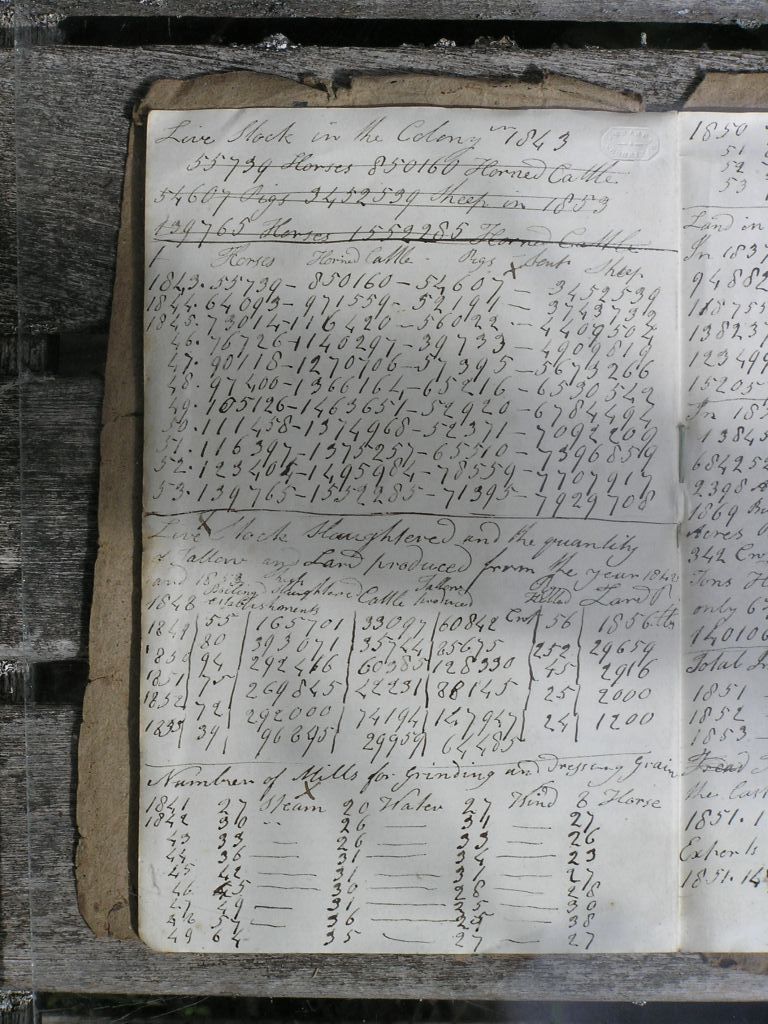 Live Stock in the Colony in 1843
55739 Horses 850160 Horned Cattle
54607 Pigs 3452539 Sheep in 1853
139765 Horses 1552285 Horned Cattle
Horses Horned Cattle Pigs Sheep
1843. 55739 - 850160 - 54607 - 3452539
1844. 64093 - 971559 - 52191 - 3743732
1845. 73014 - 1116420 - 56022 - 4409504
46. 76726 - 1140297 - 39733 - 4909819
47. 90118 - 1270706 - 57395 - 5673266
48. 97400 - 1366164 - 65216 - 6530542
49. 105126 - 1463651 - 52920 - 6784494
50. 111458 - 1374968 - 52371 - 7092209
51. 116397 - 1375257 - 65510 - 7396859
52. 123404 - 1495984 - 78559 - 7707917
53. 139765 - 1552285 - 71395 - 7929708
Live Stock Slaughtered and the quantity
of Tallow and Lard produced from the year 1848
and 1853
Boiling establishments Sheep Slaughtered Cattle Tallow produced Cwt Pigs Killed Lard lbs
1848 55 165701 33097 60842 56 1856
1849 80 393071 35744 85675 252 29659
1850 94 292416 60385 128330 45 2916
1851 75 269845 42231 88145 25 2000
1852 72 292000 74194 147947 24 1200
1853 39 96695 29959 64485
Number of Mills for Grinding and Dressing Grain
1841 27 Steam 20 Water 27 Wind 8 Horse
1842 30 26 — 31 — 27
43 33 — 26 — 33 — 26
44 36 — 31 — 34 — 23
45 42 — 31 — 31 — 27
46 45 — 30 — 28 — 28
47 49 — 31 — 25 — 30
48 51 — 36 — 25 — 38
49 64 35 — 27 — 27
1850
51
52
53
Land in
In 1837
94882
118755
138237
123499
15205
In 185
13845
684252
2398
1869
Acres
342
Tons
only 6
140106
Total
1851 —
1852
1853 —
the
1851. 1
Exports
1851. 14